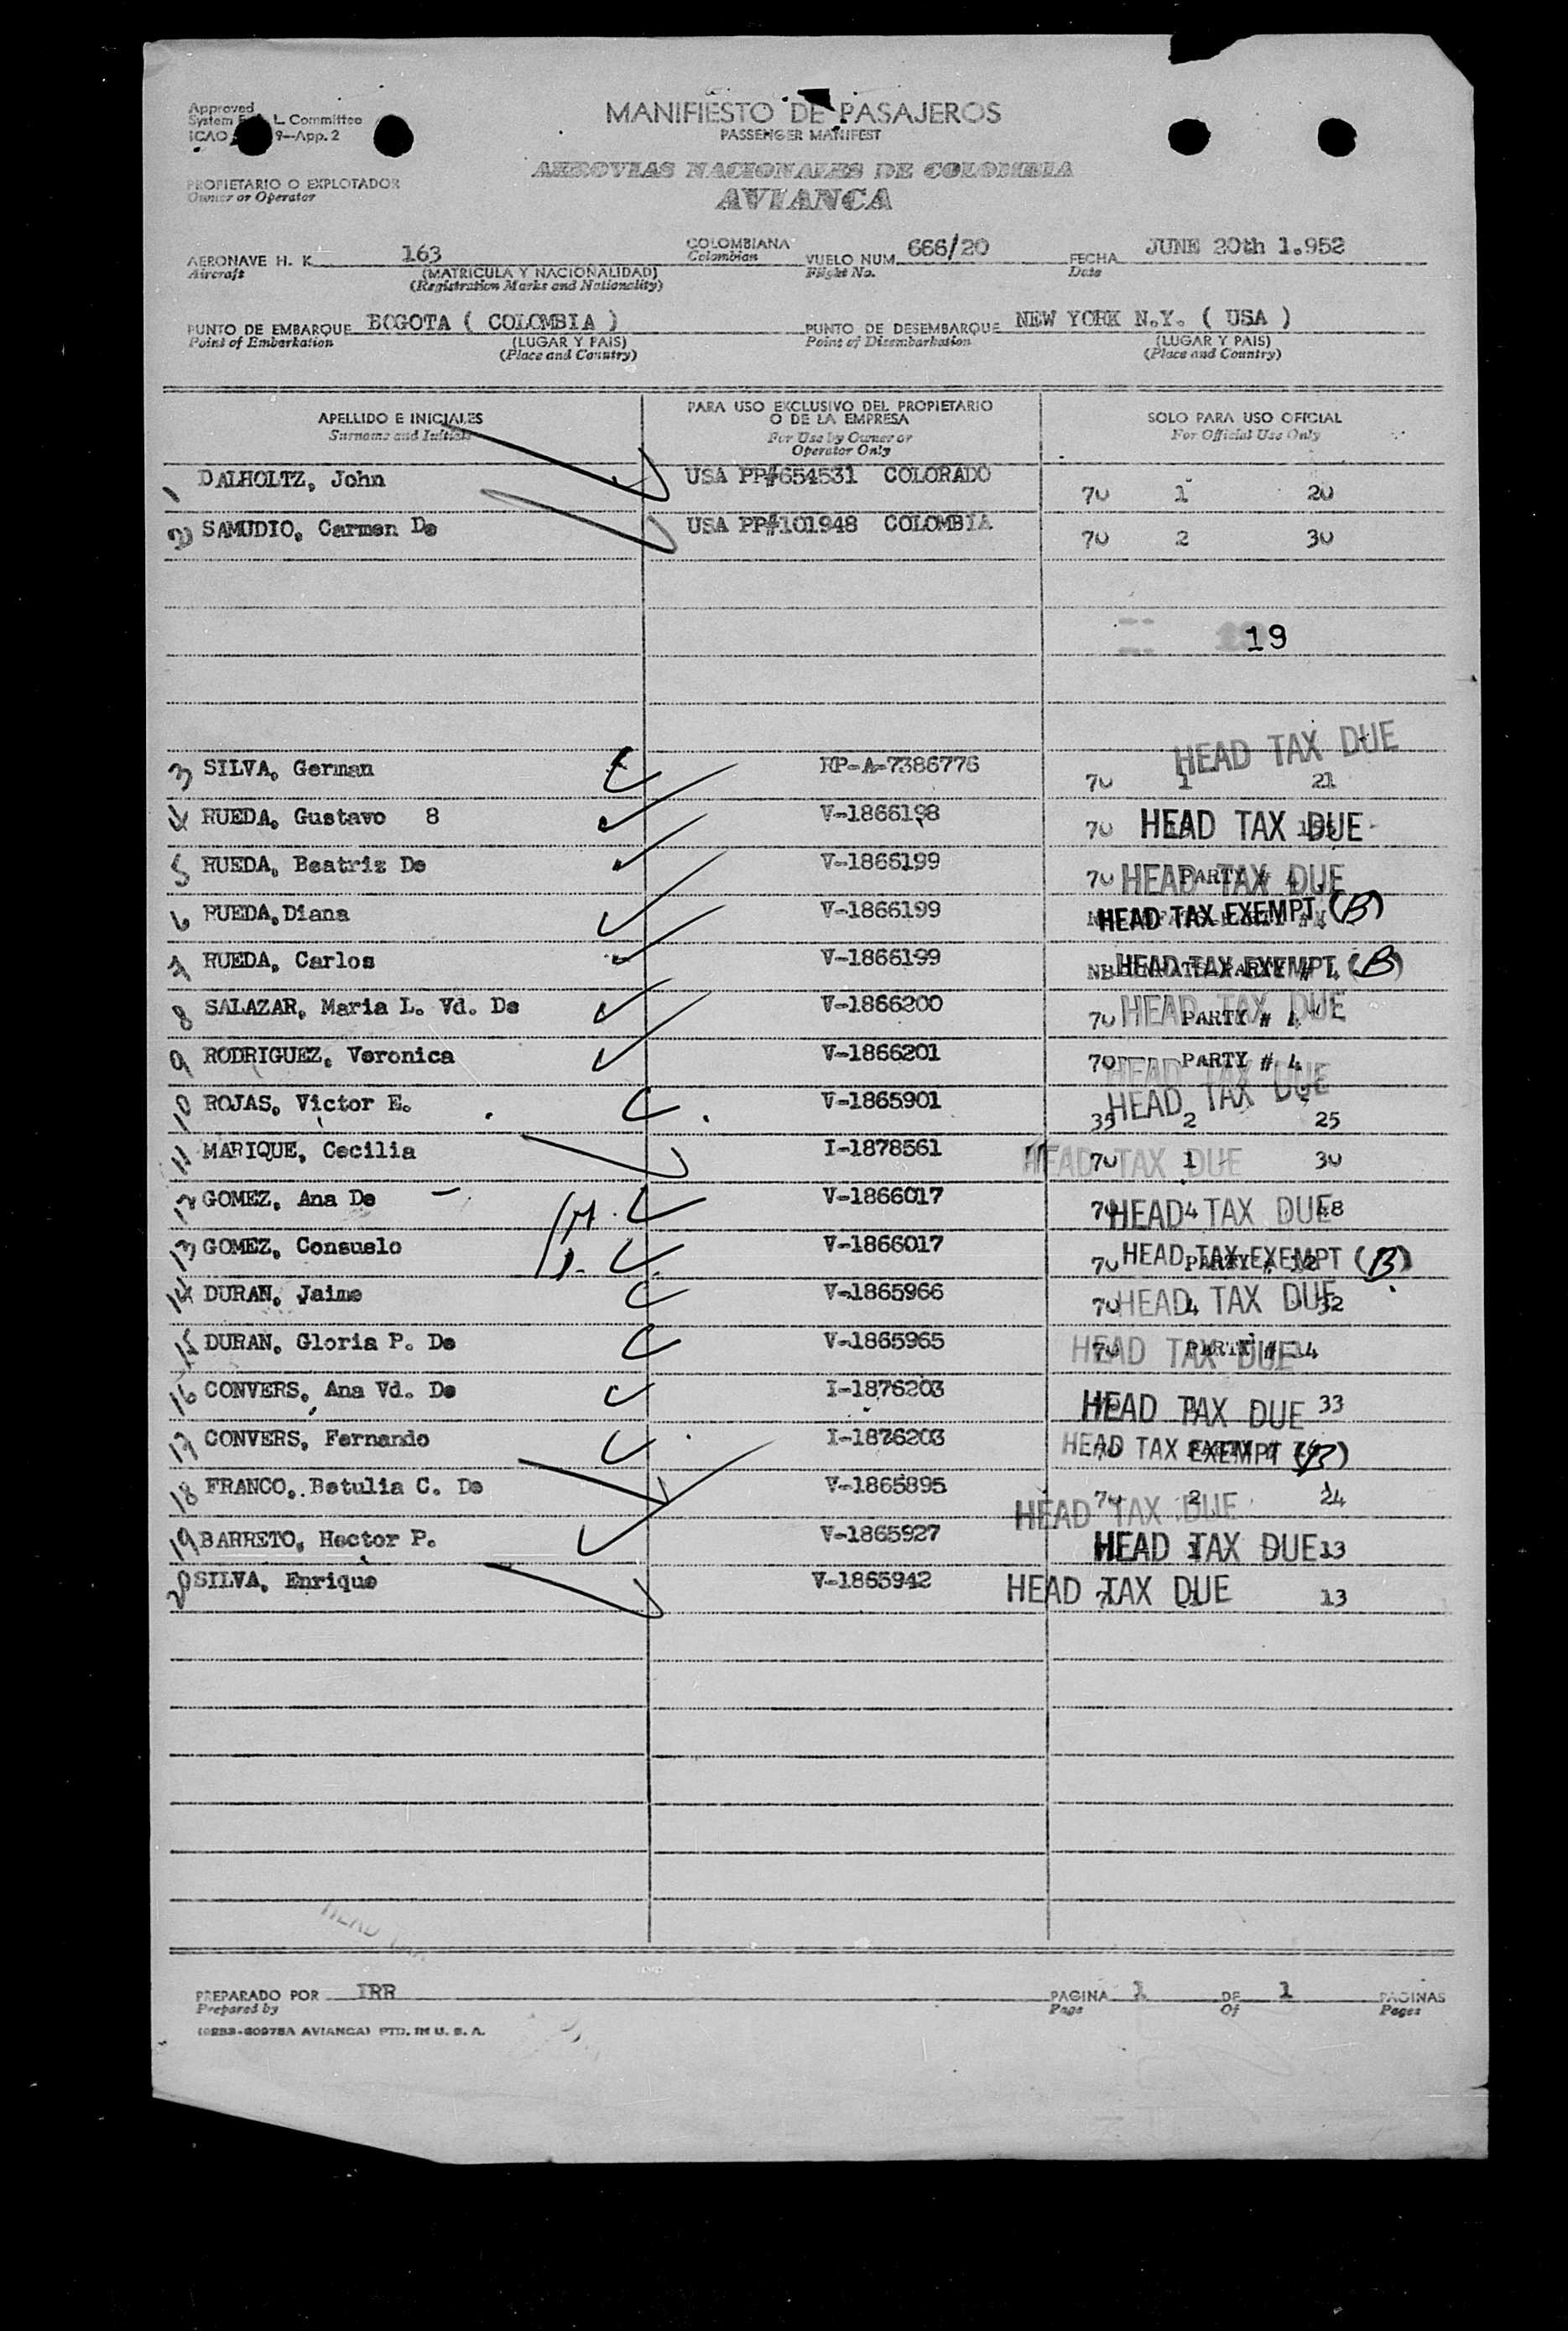 Approved
System L. Committee
ICAO 9-App. 2
MANIFIESTO DE PASAJEROS
PASSENGER MANIFEST
AEROVIAS NACIONALES DE COLOMBIA
AVIANCA
PROPIETARIO O EXPLOTADOR
Owner or Operator
AERONAVE H. K. 163 COLOMBIANA VUELO NUM. 666/20 FECHA JUNE 20th 1.952
Aircraft (MATRICULA Y NACIONALIDAD) Colombian Flight No. Date
(Registration Marks and Nationality)
PUNTO DE EMBARQUE BOGOTA ( COLOMBIA ) PUNTO DE DESEMBARQUE NEW YORK N.Y. ( USA )
Point of Embarkation (LUGAR Y PAIS) Point of Disembarkation (LUGAR Y PAIS)
(Place and Country) (Place and Country)
APELLIDO E INICIALES PARA USO EXCLUSIVO DEL PROPIETARIO O DE LA EMPRESA SOLO PARA USO OFICIAL
Surname and Initials For Use by Owner or Operator Only For Official Use Only
1 DALHOLTZ, John USA PP#654531 COLORADO 70 1 20
2 SAMUDIO, Carmen De USA PP#101948 COLOMBIA 70 2 30
19
3 SILVA, German RP-A-7386776 70 1 21 HEAD TAX DUE
4 RUEDA, Gustavo 8 V-1866198 70 HEAD TAX DUE
5 RUEDA, Beatriz De V-1866199 70 PARTY # 4 HEAD TAX DUE
6 RUEDA, Diana V-1866199 HEAD TAX EXEMPT (B)
7 RUEDA, Carlos V-1866199 HEAD TAX EXEMPT (B)
8 SALAZAR, Maria L. Vd. De V-1866200 70 PARTY # 4 HEAD TAX DUE
9 RODRIGUEZ, Veronica V-1866201 70 PARTY # 4 HEAD TAX DUE
10 ROJAS, Victor E. V-1865901 35 2 25 HEAD TAX DUE
11 MARIQUE, Cecilia I-1878561 70 1 30 HEAD TAX DUE
12 GOMEZ, Ana De M. V-1866017 70 4 48 HEAD TAX DUE
13 GOMEZ, Consuelo V-1866017 70 PARTY # 12 HEAD TAX EXEMPT (B)
14 DURAN, Jaime V-1865966 70 4 32 HEAD TAX DUE
15 DURAN, Gloria P. De V-1865965 70 PARTY # 14 HEAD TAX DUE
16 CONVERS, Ana Vd. De I-1876203 33 HEAD TAX DUE
17 CONVERS, Fernando I-1876203 HEAD TAX EXEMPT (B)
18 FRANCO, Betulia C. De V-1865895 70 2 24 HEAD TAX DUE
19 BARRETO, Hector P. V-1865927 13 HEAD TAX DUE
20 SILVA, Enrique V-1865942 13 HEAD TAX DUE
HEAD TAX
PREPARADO POR IRR PAGINA 1 DE 1 PAGINAS
Prepared by Page Of Pages
(0253-60978A AVIANCA) PTD. IN U. S. A.